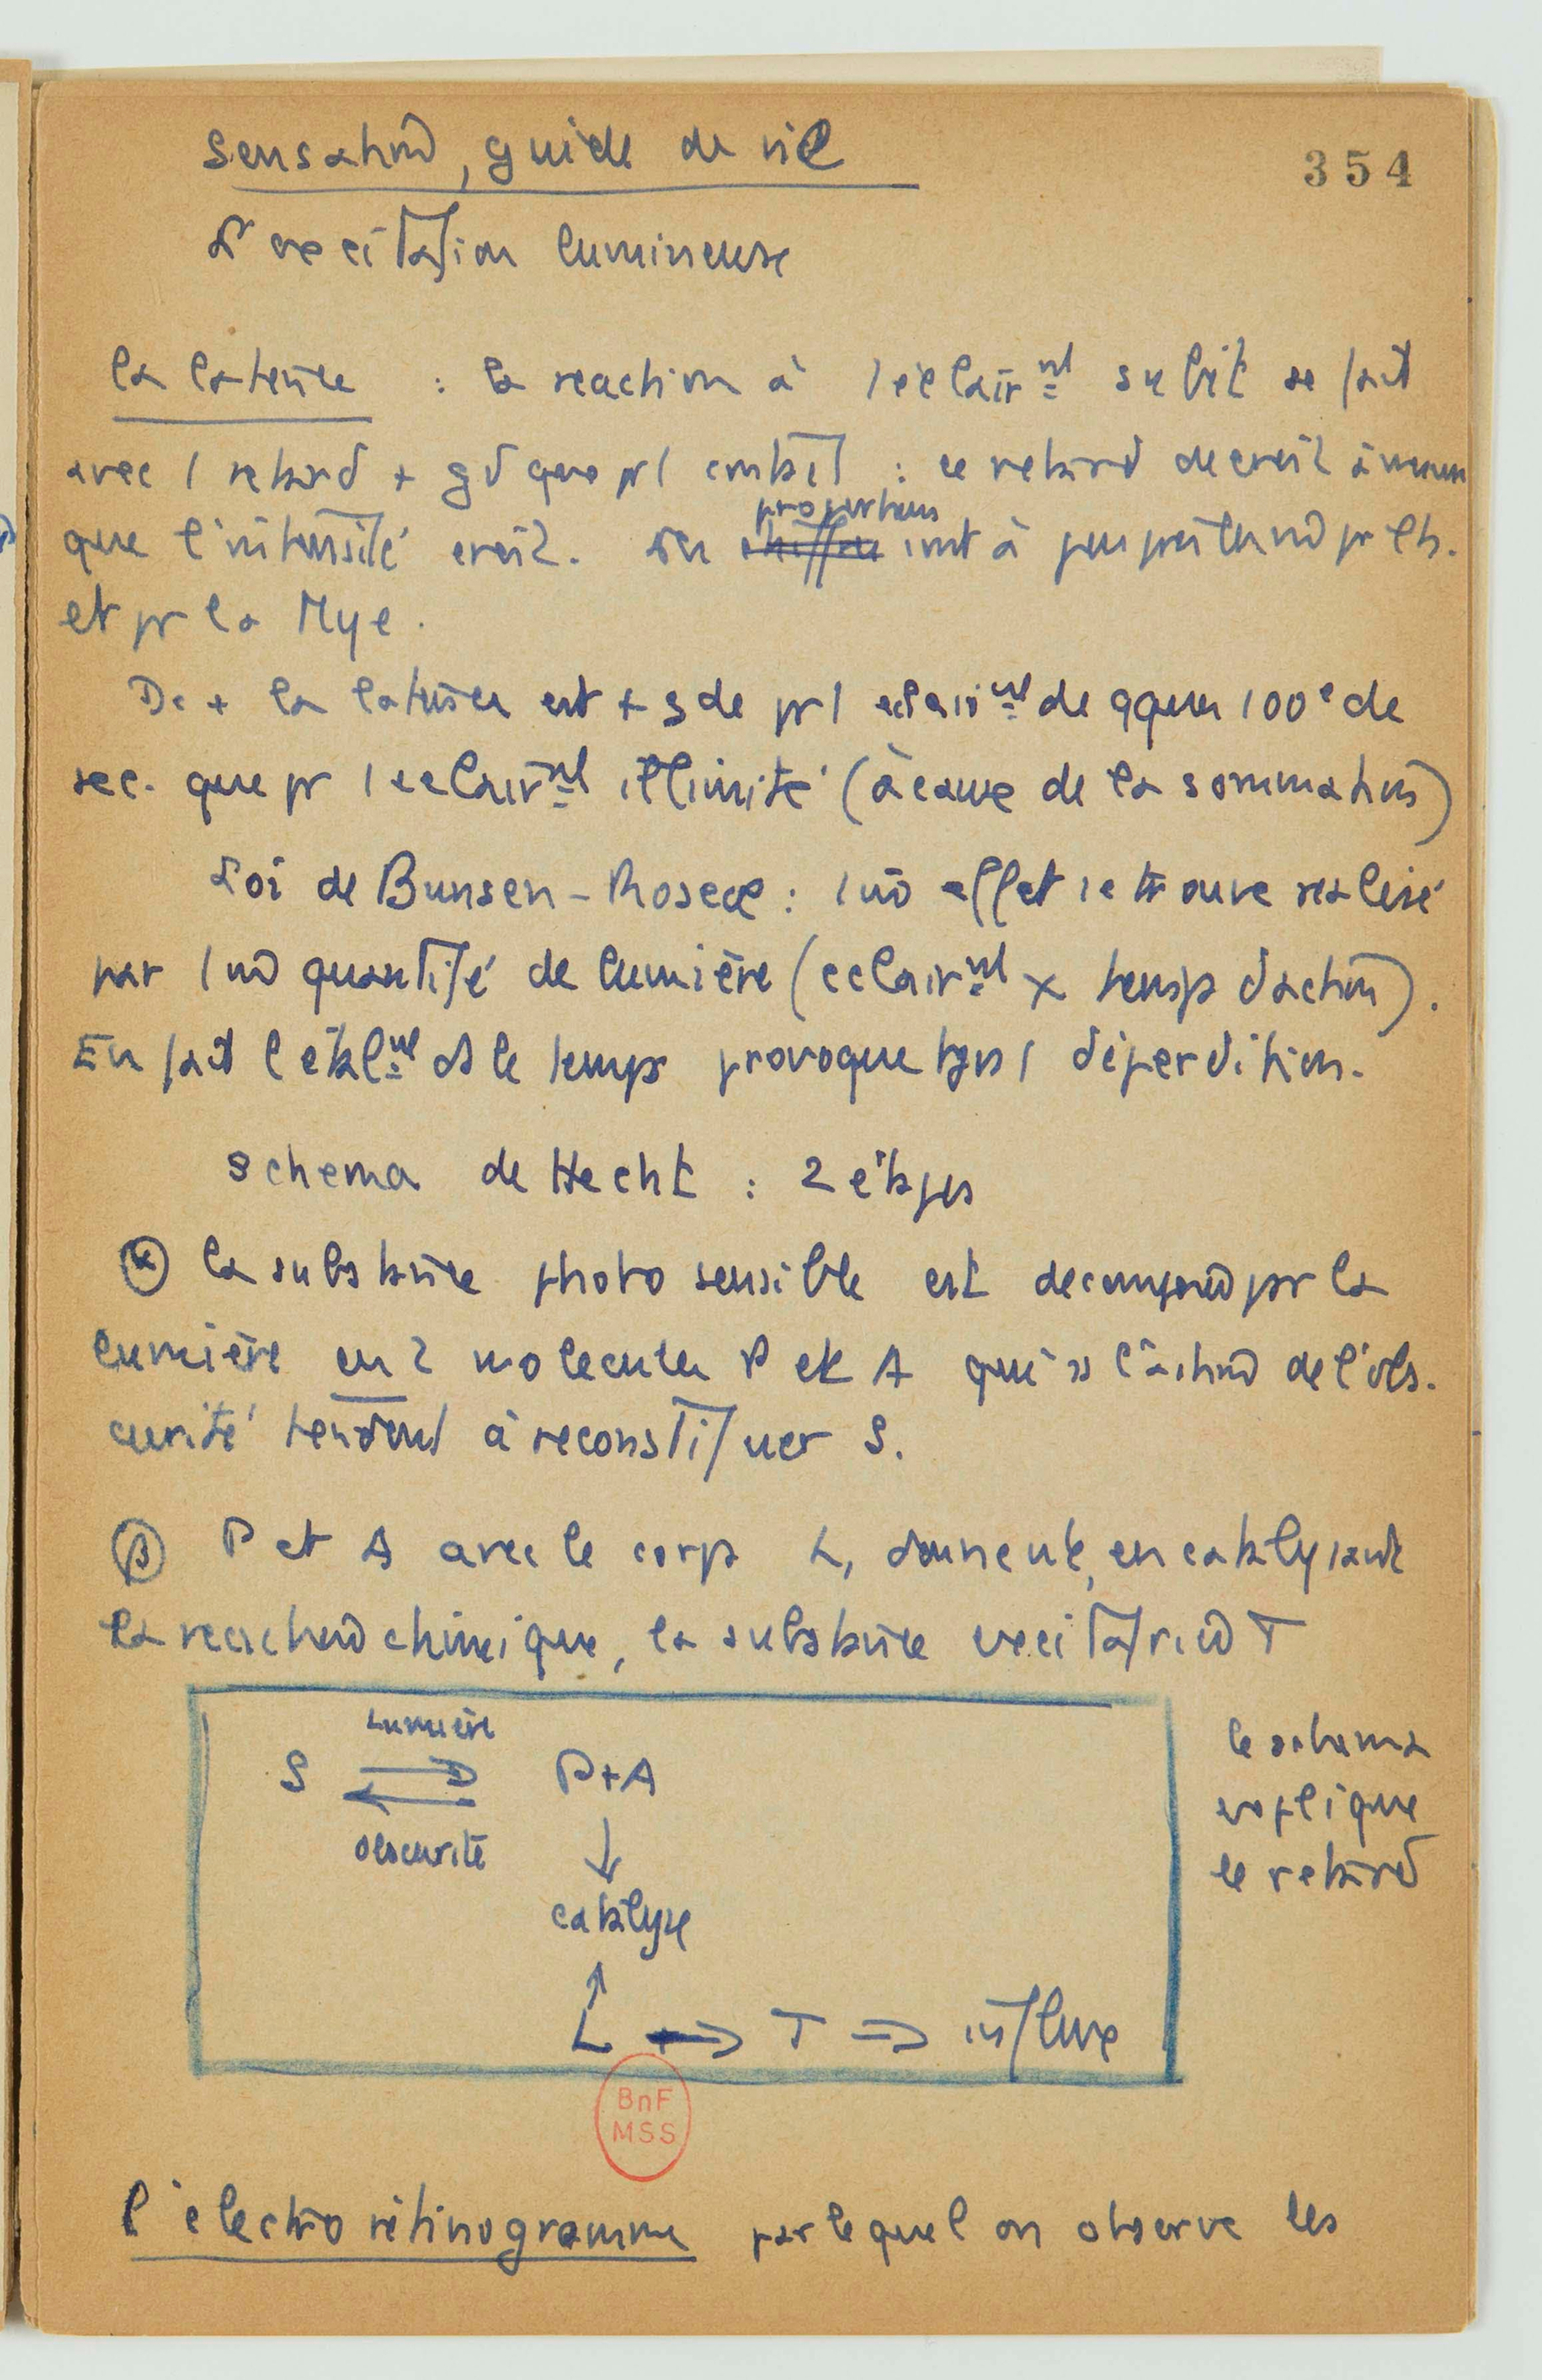 Sensation, guide de vie
354
L'excitation lumineuse
la latence : la reaction à 1 éclair nt subit se fait
avec 1 retard + gd que pr 1 contact : ce retard decroit à mesure
que l'intensité croit. Les proportions sont à peu près les m pr l'h.
et pr la Mye.
De + la latence est + gde pr 1 eclair nt de qques 100e de
sec. que pr 1 eclair nt illimité (à cause de la sommation)
Loi de Bunsen-Roscoe : 1 m effet se trouve réalisé
par 1 m quantité de lumière (eclair nt x temps d'action).
En fait l'étal nt ds le temps provoque tjrs 1 déperdition.
Schema de Hecht : 2 étapes
α la substance photosensible est decomposée par la
lumière en 2 molecules P et A qui ss l'action de l'obs-
curité tendent à reconstituer S.
β P et A avec le corps L, donnent, en catalysant
la reaction chimique, la substance excitatrice T
Lumière
S P+A
obscurité
catalyse
L T influx
le schema
explique
le retard
BnF
MSS
l'électrorétinogramme par lequel on observe les